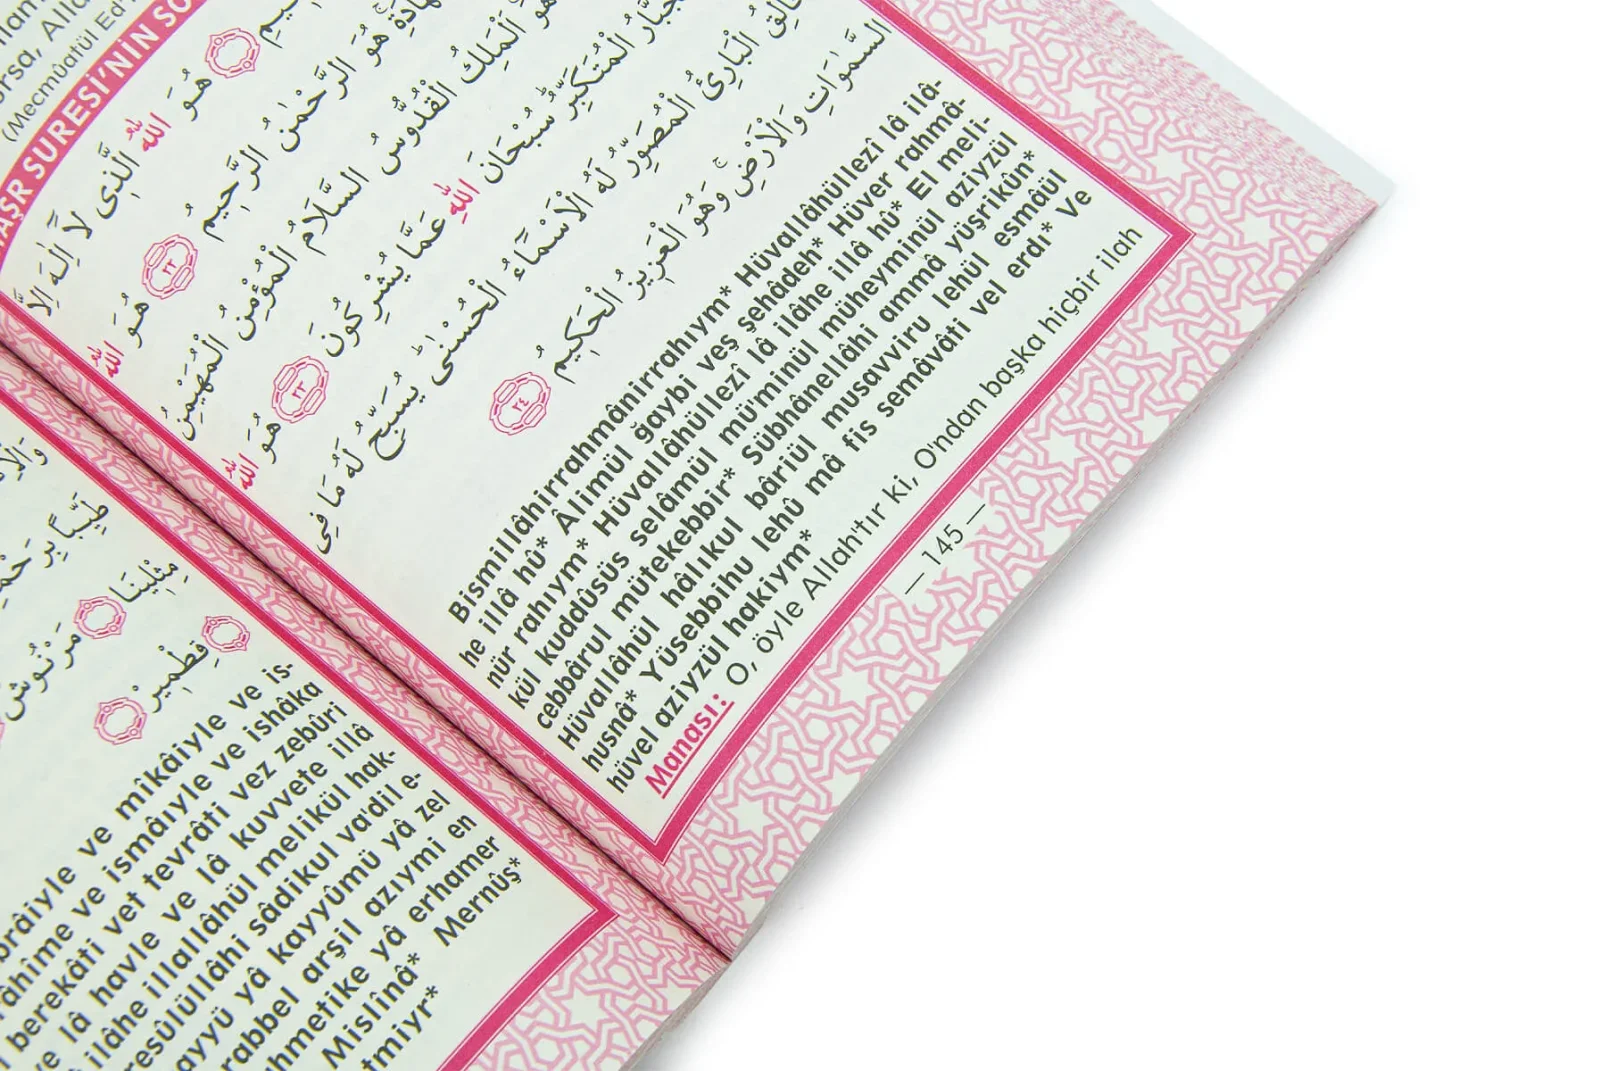 (Mecmûatül Ed'
AŞR SURESİ'NİN SO
هُوَ اللّٰهُ الَّذِى لَا اِلٰهَ اِلَّا
هَادَةِ هُوَ الرَّحْمٰنُ الرَّحِيمُ ﴿٢٢﴾ هُوَ اللّٰهُ
هُوَ اَلْمَلِكُ الْقُدُّوسُ السَّلَامُ الْمُؤْمِنُ الْمُهَيْمِنُ
جَبَّارُ الْمُتَكَبِّرُ سُبْحَانَ اللّٰهِ عَمَّا يُشْرِكُونَ ﴿٢٣﴾ هُوَ اللّٰهُ
الِقُ الْبَارِئُ الْمُصَوِّرُ لَهُ الْاَسْمَاءُ الْحُسْنٰى يُسَبِّحُ لَهُ مَا فِى
السَّمٰوَاتِ وَالْاَرْضِ وَهُوَ الْعَزِيزُ الْحَكِيمُ ﴿٢٤﴾
Bismillâhirrahmânirrahıym* Hüvallâhüllezî lâ ilâ-
he illâ hû* Âlimül ğaybi veş şehâdeh* Hüver rahmâ-
nür rahıym* Hüvallâhüllezî lâ ilâhe illâ hû* El meli-
kül kuddûsüs selâmül mü'minül müheyminül aziyzül
cebbârul mütekebbir* Sübhânellâhi ammâ yüşrikûn*
Hüvallâhül hâlıkul bâriül musavviru lehül esmâül
husnâ* Yüsebbihu lehû mâ fis semâvâti vel erdı* Ve
hüvel aziyzül hakiym*
Manası: O, öyle Allah'tır ki, O'ndan başka hiçbir ilah
— 145 —
طَيِّبًا بِرَحْمَ
مِثْلِينَا
مَرْنُوشْ
قِطْمِيرْ
brâiyle ve mîkâiyle ve is-
râhîme ve ismâıyle ve ishâka
berekâti vet tevrâti vez zebûri
ve lâ havle ve lâ kuvvete illâ
ilâhe illallâhül melikül hak-
resûlüllâhi sâdikul va'dil e-
ayyü yâ kayyûmü yâ zel
rabbel arşil azıymi en
hmetike yâ erhamer
Mislînâ* Mernûş*
tmiyr*